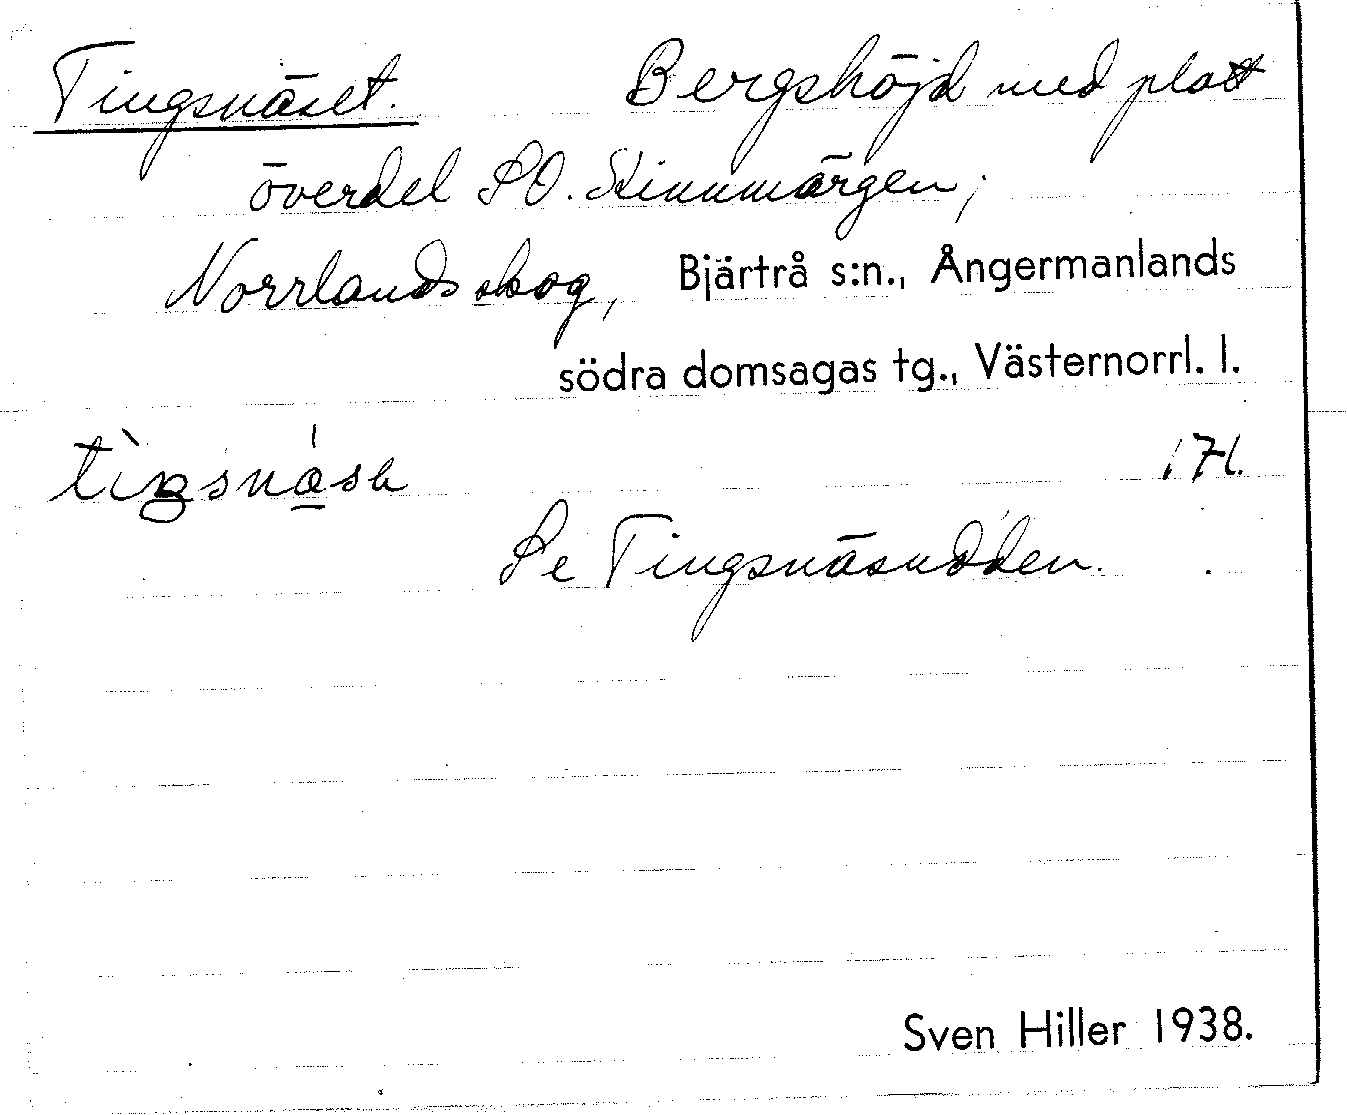 Tingsnäset. Bergshöjd med platt
överdel SO. Stinnmärgen;
Norrlandsskog, Bjärtrå s:n., Ångermanlands
södra domsagas tg., Västernorrl. l.
Se Tingsnäsudden.
Sven Hiller 1938.